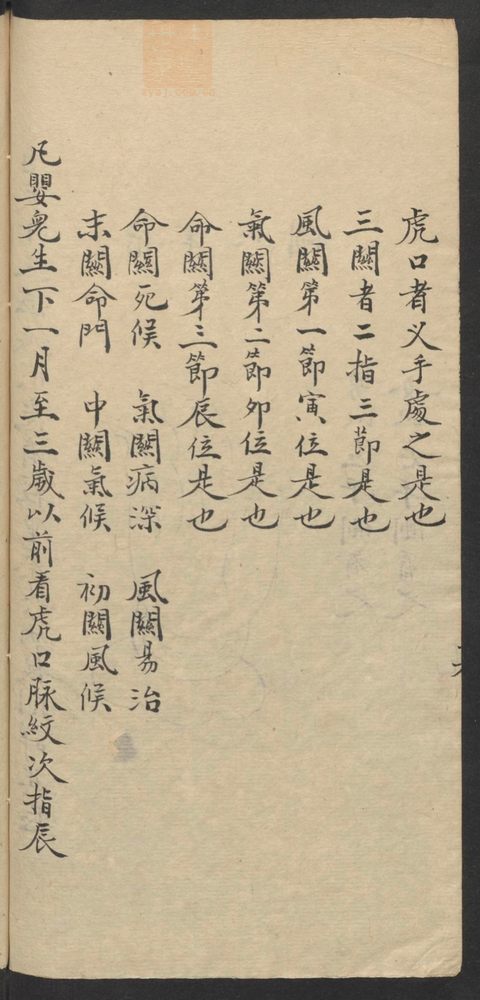 虎口者乂手處之是也
三關者二指三節是也
風關第一節寅位是也
氣關第二節卯位是也
命關第三節辰位是也
命關死候　氣關病深　風關易治
末關命門　中關氣候　初關風候
凡嬰皃生下一月至三歲以前看虎口脉紋次指辰